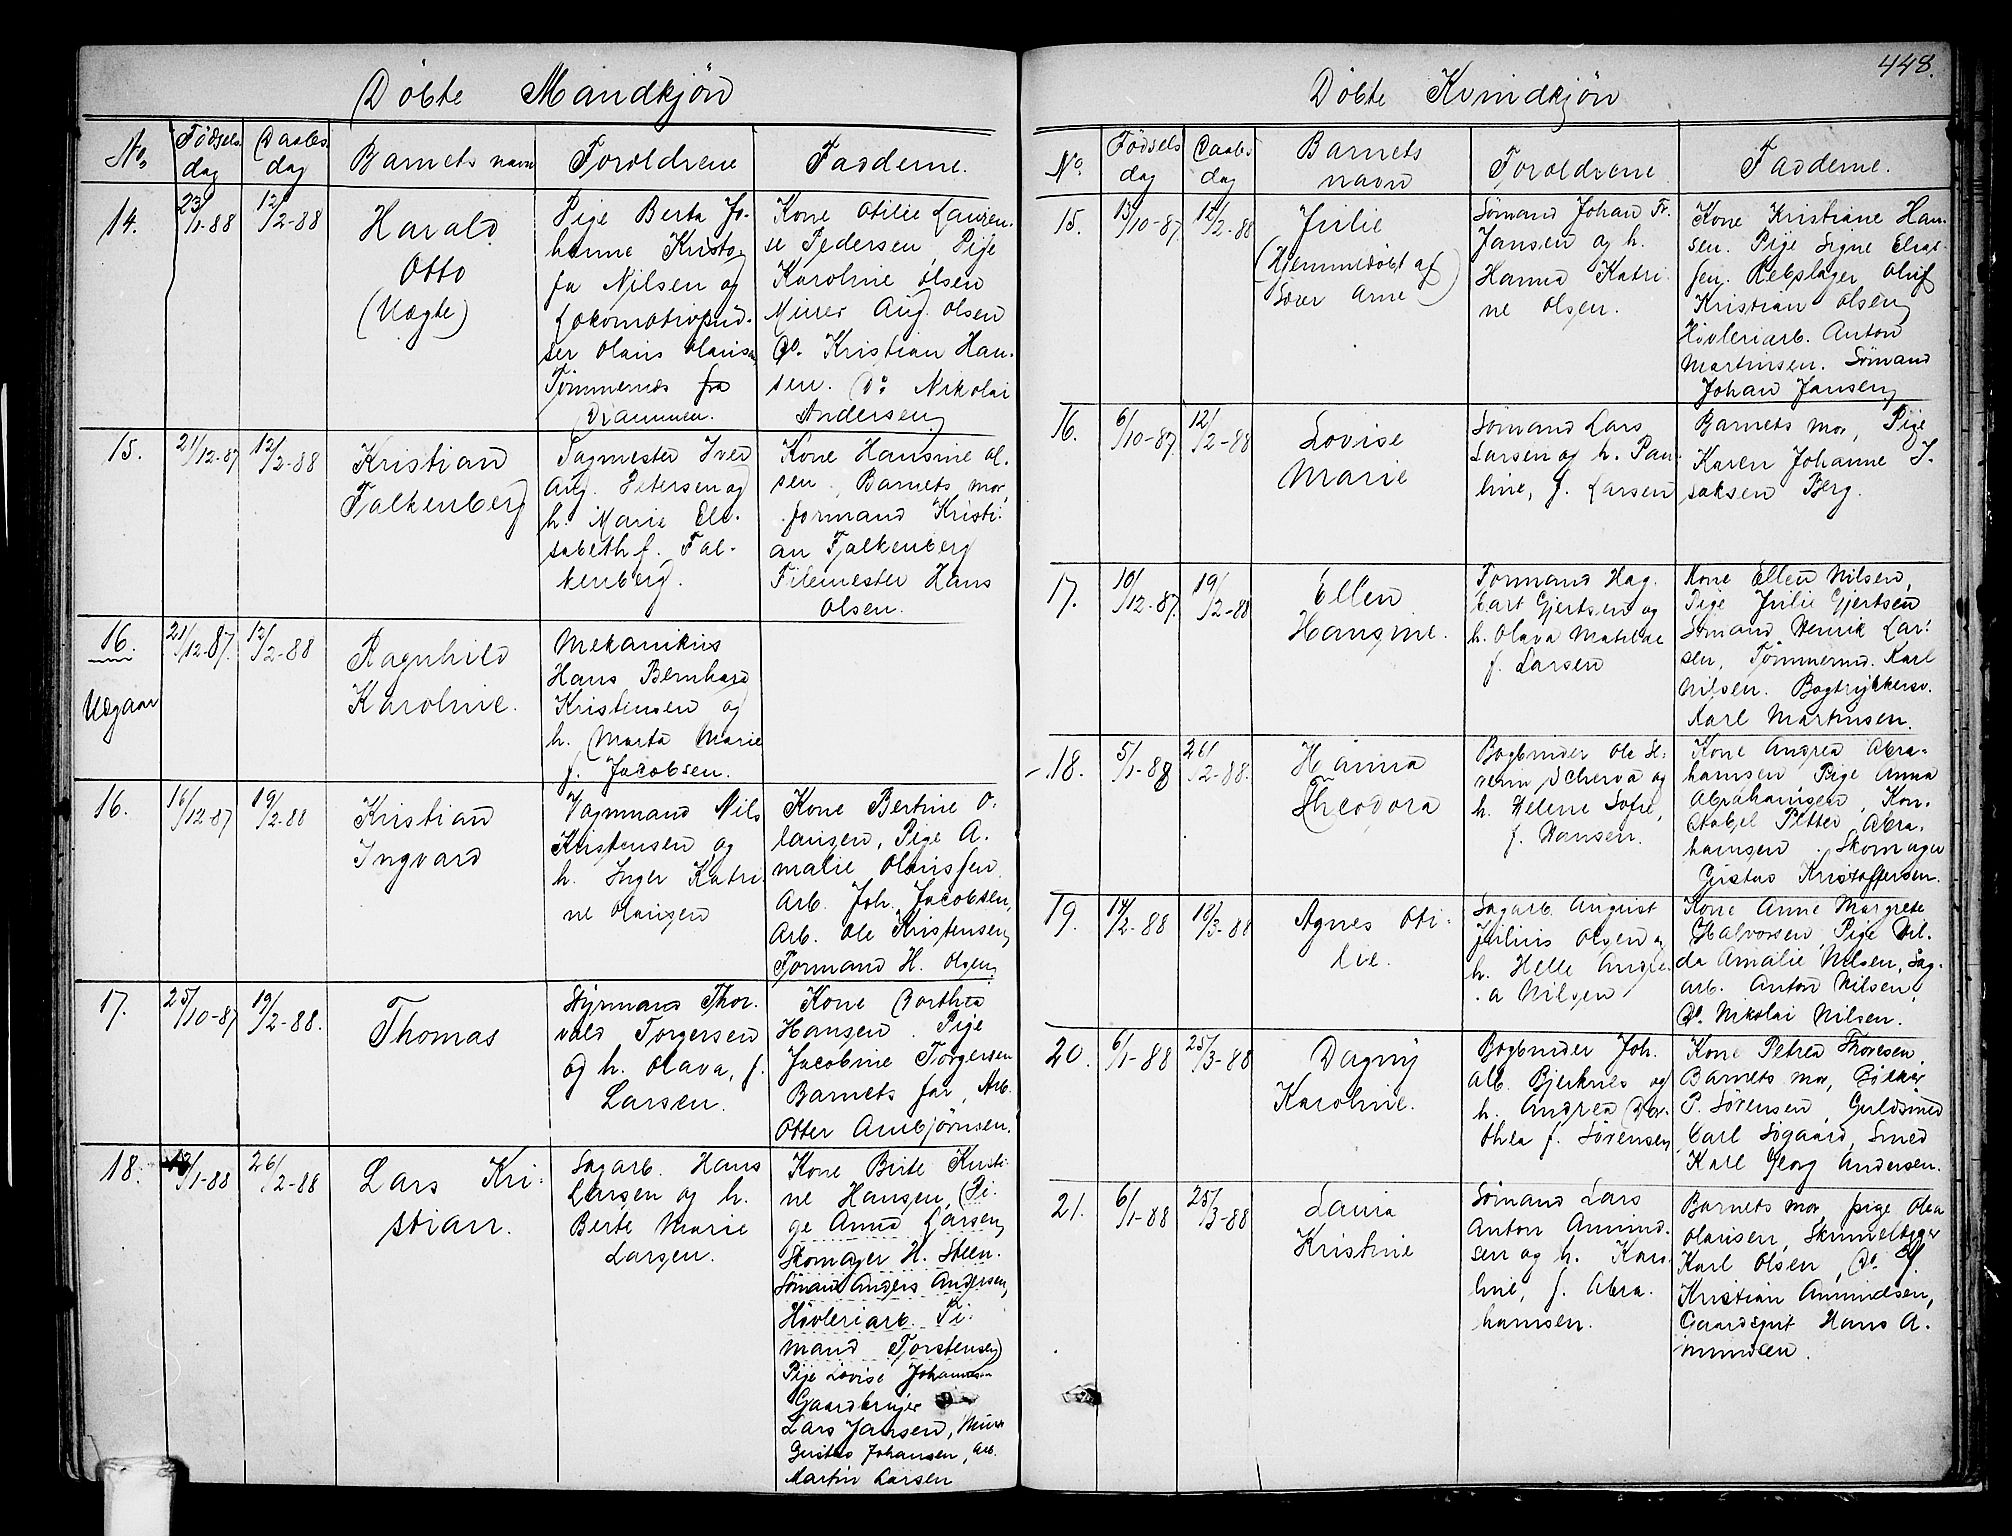 Döbte Mandkjön
No
Fødsels
dag
Daabs
dag
Barnets navn
Foroldrene
Fadderne.
14.
23/1-88
12/2-88
Harald
Otto
(Uægte)
Pige Berta Jo-
hanne Kristo-
fa Nilsen og
Lokomotivpud-
ser Olaus Olausen
Tømmernes fra
Drammen.
Kone Otilie Lauren-
se Pedersen, Pije
Karoline Olsen
Murer Aug. Olsen
Do. Kristian Han-
sen. Do Nikolai
Andersen
15.
21/12-87
12/2-88
Kristian
Falkenberg
Sagmester Iver
Aug. Petersen og
h. Marie Eli-
sabeth f. Fal-
kenberg.
Kone Hansine Ol-
sen. Barnets mor,
Formand Kristi-
an Falkenberg
Filemester Hans
Olsen.
16.
Udgaar
21/12-87.
12/2-88
Ragnhild
Karoline.
Mekanikus
Hans Bernhard
Kristensen og
h. Marta Marie
f. Jacobsen.
16.
16/12-87
19/2-88
Kristian
Ingvard
Vognmand Nils
Kristensen og
h. Inger Katri-
ne Olausen
Kone Bertine O-
lausen, Pige A-
malie Olaussen
Arb. Joh. Jacobsen,
Arb. Ole Kristensen,
Formand H. Olsen,
17.
25/10-87
19/2-88.
Thomas
Styrmand Thor-
vald Torgersen
og h. Olava, f.
Larsen.
Kone Dorthea
Hansen. Pige
Jacobine Torgersen
Barnets far, Arb.
Otter Ambjørnsen.
18.
/1-88
26/2-88
Lars Kri-
stian.
Sagarb. Hans
Larsen og h.
Berte Marie
Larsen.
Kone Birte Kristi-
ne Hansen, Pi-
ge Anna Larsen,
Skomager H. Steen.
Sømand Anders Andersen,
Høvleriarb. Ti-
mand Torstensen)
Pije Lovise Johannesen
Gaardbruger
Lars Jansen, Murer
Gustav Johansen, Arb.
Martin Larsen
448.
Döbte Kvindkjön
No.
Fødsels
dag
Daabs
dag
Barnets
navn
Foroldrene
Fadderne.
15.
13/10-87.
12/2-88
Julie
(Hjemmedöbt af
Lær Arne)
Sømand Johan Fr.
Jansen og h.
Hanna Katri-
ne Olsen.
Kone Kristiane Han-
sen. Pige Signe
Rebslager Oluf
Kristian Olsen,
Høvleriarb. Anton
Martinsen. Sømand
Johan Jansen,
16.
6/10-87.
12/2-88
Lovise
Marie
Sømand Lars
Larsen og h. Pau-
line, f. Larsen
Barnets mor, Pige
Karen Johanne I-
saksen Berg.
17.
10/12-87.
19/2-88
Ellen
Hansine.
Formand Hag-
bart Gjertsen og
h. Olava Matilde
f. Larsen
Kone Ellen Nilsen,
Pige Julie Gjertsen
Sømand Henrik Lar-
sen, Tømmermd. Karl
Nilsen. Bogtrykkersv.
Karl Martinsen.
18.
5/1-88
26/2-88.
Hanna
Theodora
Bogbinder Ole Se-
verin Scherva og
h. Helene Sofie,
f. Hansen.
Kone Andrea Abra-
hamsen Pige Anna
Abrahamsen, Kon-
stabel Petter Abra-
hamsen. Skomager
Gustav Kristoffersen.
19.
14/2-88
18/3-88
Agnes Oti-
lie.
Sagarb. August
Julius Olsen og
h. Helle Andre-
a Nilsen
Kone Anne Margrete
Halvorsen, Pige Hil-
da Amalie Nilsen, Sag-
arb. Anton Nilsen,
Do. Nikolai Nilsen.
20.
6/1-88
25/3-88
Dagny
Karoline.
Bogbinder Joh.
Alb. Bjerknes og
h. Andrea Dor-
thea f. Sørensen,
Kone Petrea Thoresen,
Barnets mor, Bødker
P. Sörensen, Guldsmed
Carl Søgaard, Smed
Karl Georg Andersen.
21.
6/1-88
25/3-88
Laura
Kristine
Sømand Lars
Anton Amund-
sen og h. Karo-
line, f. Abra-
hamsen.
Barnets mor, pige Olea
Olausen, Skrædder
Karl Olsen, Do.
Kristian Amundsen,
Gaardsgut Hans A-
mundsen.